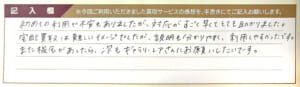 記入欄 ※今回ご利用いただきました買取サービスの感想を、手書きにてご記入お願いします。
初めての利用で不安もありましたが、対応がすごく早くてとても助かりました。
宅配買取は難しいイメージでしたが、説明も分かりやすく、利用しやすかったです。
また機会があったら、次もギャラリーアさんにお願いしたいです。